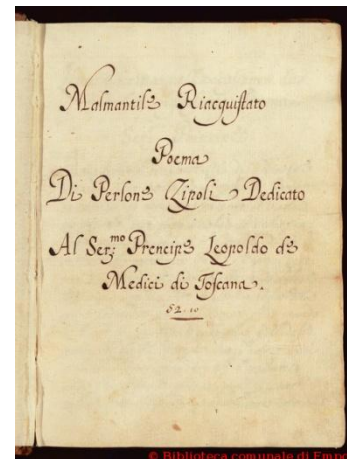 Malmantile Riacquistato
Poema
Di Perlone Zipoli Dedicato
Al Ser.mo Prencipe Leopoldo de
Medici di Toscana.
52.10
© Biblioteca comunale di Empo